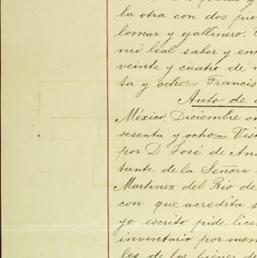 la otra con dos pie
lomar y gallinero.
mi leal saber y en
veinte y cuatro de
ta y ocho= Francis
Auto de
México, Diciembre on
sesenta y ocho= Vis
por D. José de An
tante de la Señora
Martinez del Rio de
con que acredita s
yo escrito pide lice
inventario por men
les de los bienes de